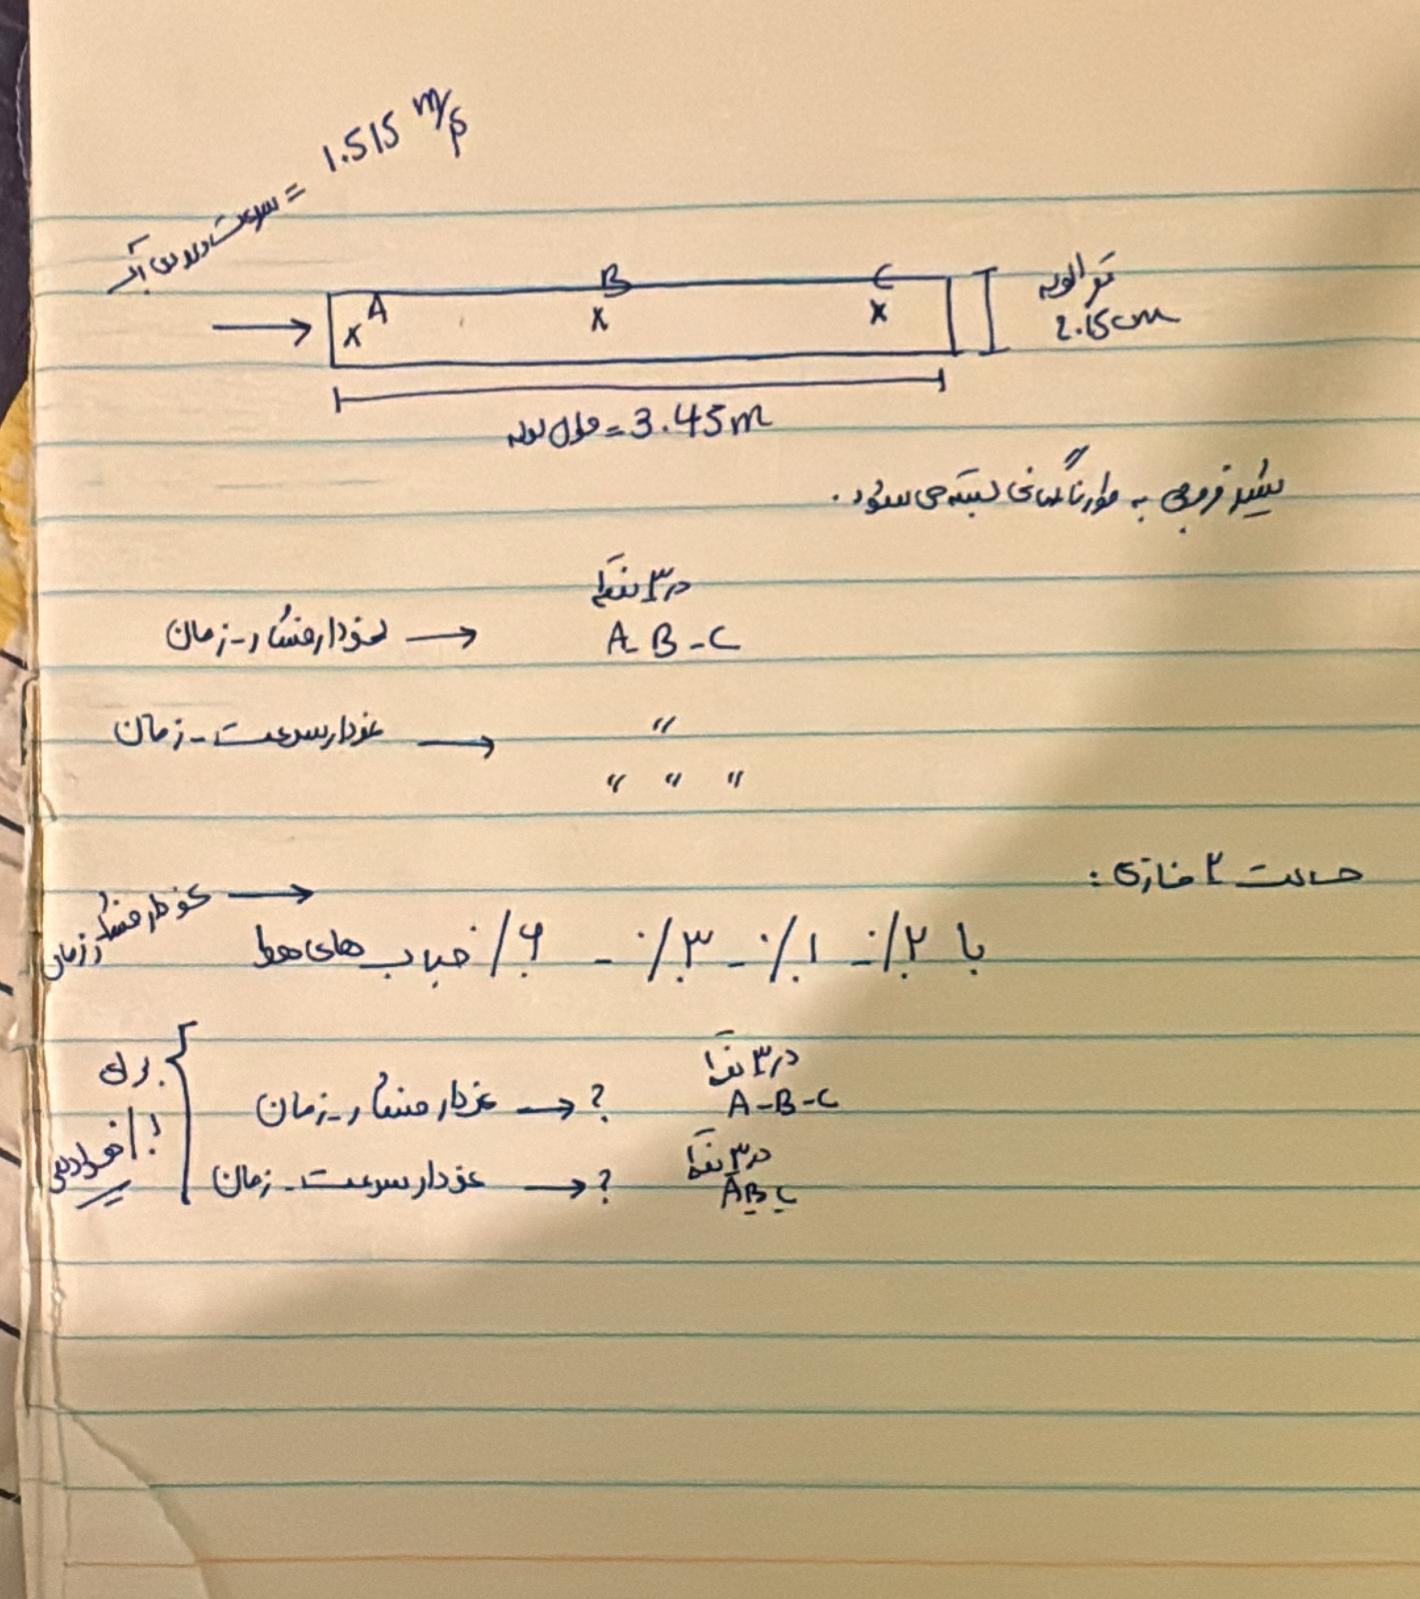 سرعت ورودی آب = 1.515 m/s
A B C
قطر لوله
2.15cm
طول لوله = 3.45m
شیر خروجی به طور ناگهانی بسته می شود.
در ۳ نقطه
نمودار فشار - زمان → A - B - C
نمودار سرعت - زمان → "
" " "
حالت ۲ فازی:
با ۲٪ - ۱٪ - ۳٪ - ۶٪ حباب های هوا → نمودار فشار زمان
در ۳ نقطه
برای
نمودار فشار - زمان → ? A - B - C
در ۳ نقطه
نمودار سرعت - زمان → ? A B C